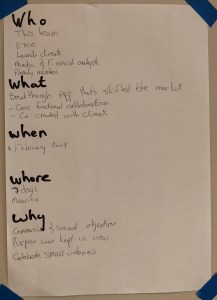 Who
This team
Exco
Launch clients
Media & Financial analysts
Family members
What
Breakthrough App that shifted the market
- Cross functional collaboration
- Co created with client
when
February
where
7 days
Mauritius
why
Commercial & social objectives
Purpose was kept in view
Celebrate small